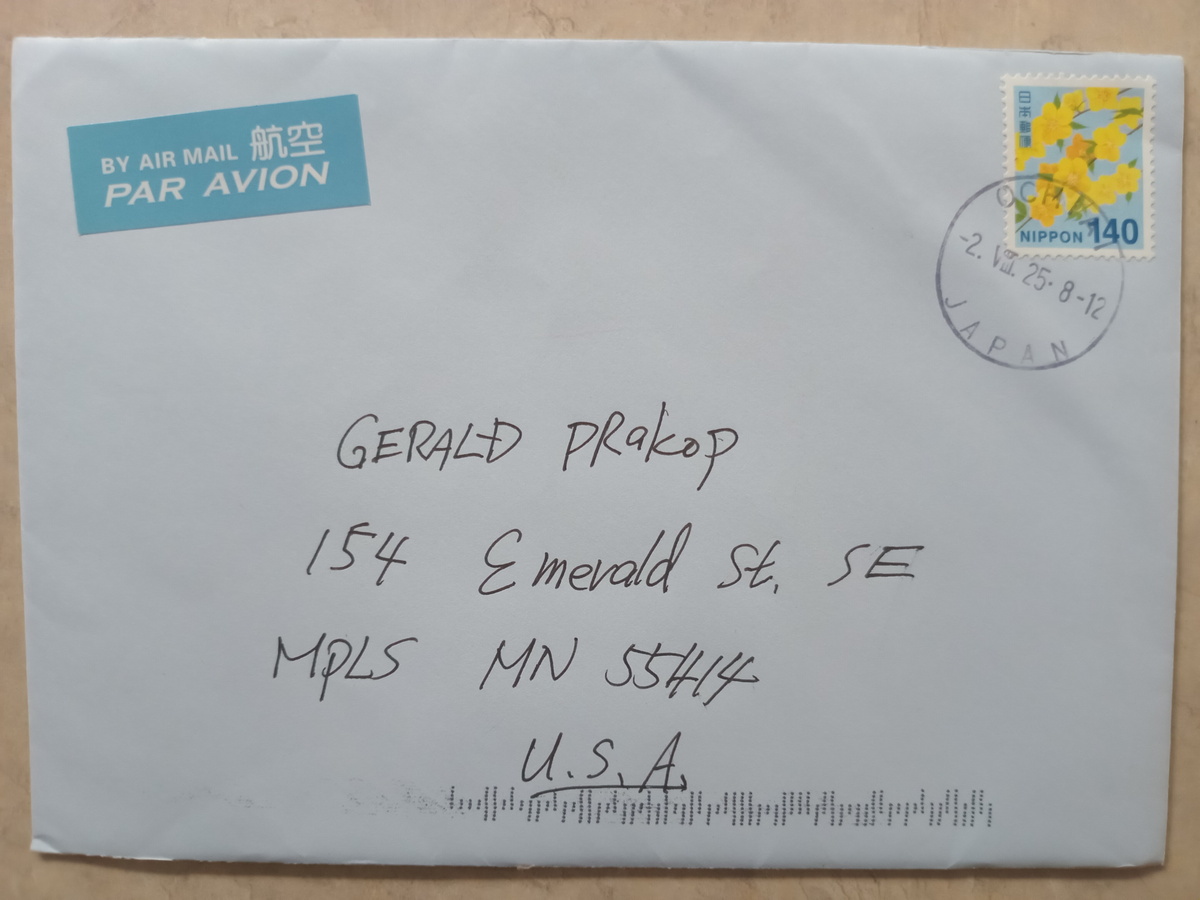 BY AIR MAIL 航空
PAR AVION
日本郵便
NIPPON 140
-2. VIII. 25. 8-12
JAPAN
GERALD PRakop
154 Emerald St. SE
MPLS MN 55414
U.S.A.